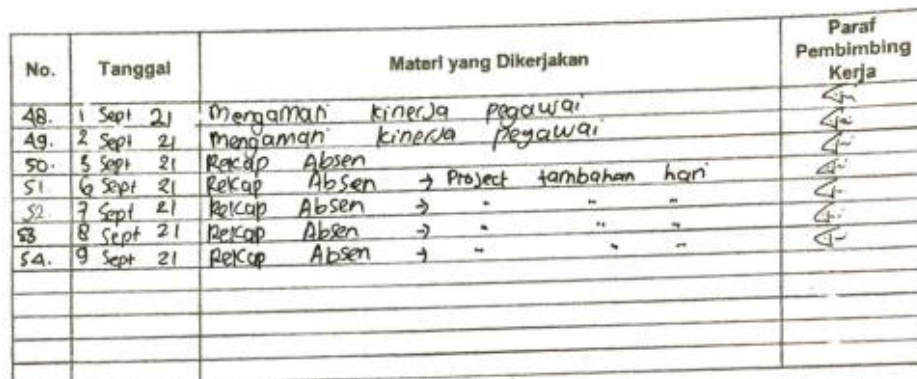 No. Tanggal Materi yang Dikerjakan Paraf Pembimbing Kerja
48. 1 Sept 21 Mengamati kinerja pegawai
49. 2 Sept 21 Mengamati kinerja pegawai
50. 5 Sept 21 Rekap Absen
51 6 Sept 21 Rekap Absen → Project tambahan hari
52. 7 Sept 21 Rekap Absen → " " "
53 8 Sept 21 Rekap Absen → " " "
54. 9 Sept 21 Rekap Absen → " " "